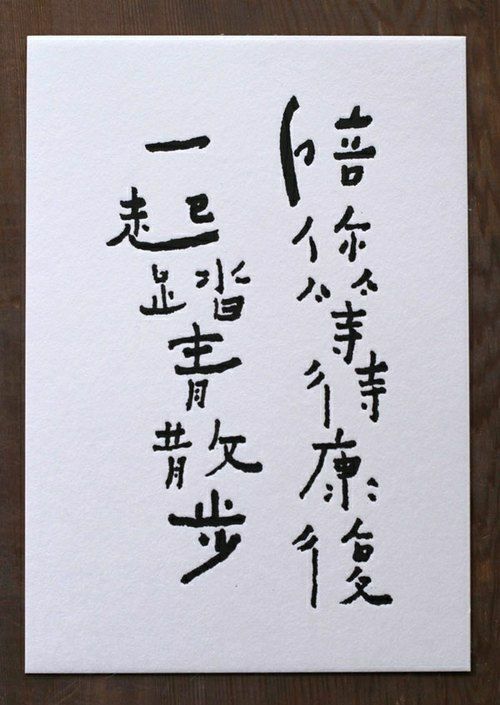 陪你等待康復
一起踏青散步